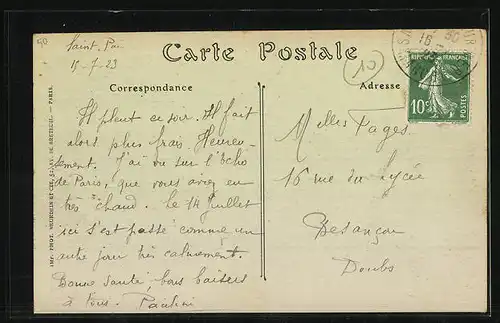 50
Saint-
15-7-23
Carte Postale
10
Correspondance
Adresse
RÉPUBLIQUE FRANÇAISE
10c
POSTES
16
Il pleut ce soir. Il fait
alors plus frais Heureu-
sement. J'ai vu sur l'Echo
de Paris, que vous avez eu
très chaud. Le 14 Juillet
ici s'est passé comme un
autre jour très calmement.
Bonne santé bons baisers
à tous. Pauline
Melles Pages
16 rue du Lycée
Besançon
Doubs
IMP. PHOT. NEURDEIN ET CIE, 52, AV. DE BRETEUIL. — PARIS.